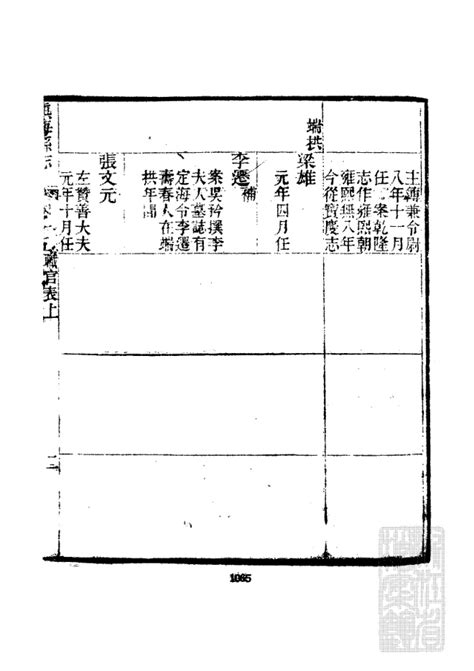 主薄兼令尉
八年十一月
任 案乾隆
志作雍熙朝
雍熙無八年
今從寶慶志
端拱
梁雄
元年四月任
李遷 補
案吳矜撰李
夫人墓誌有
定海令李遷
壽春人在端
拱年間
張文元
左贊善大夫
元年十月任
鎮海縣志
職官表上
二
1065